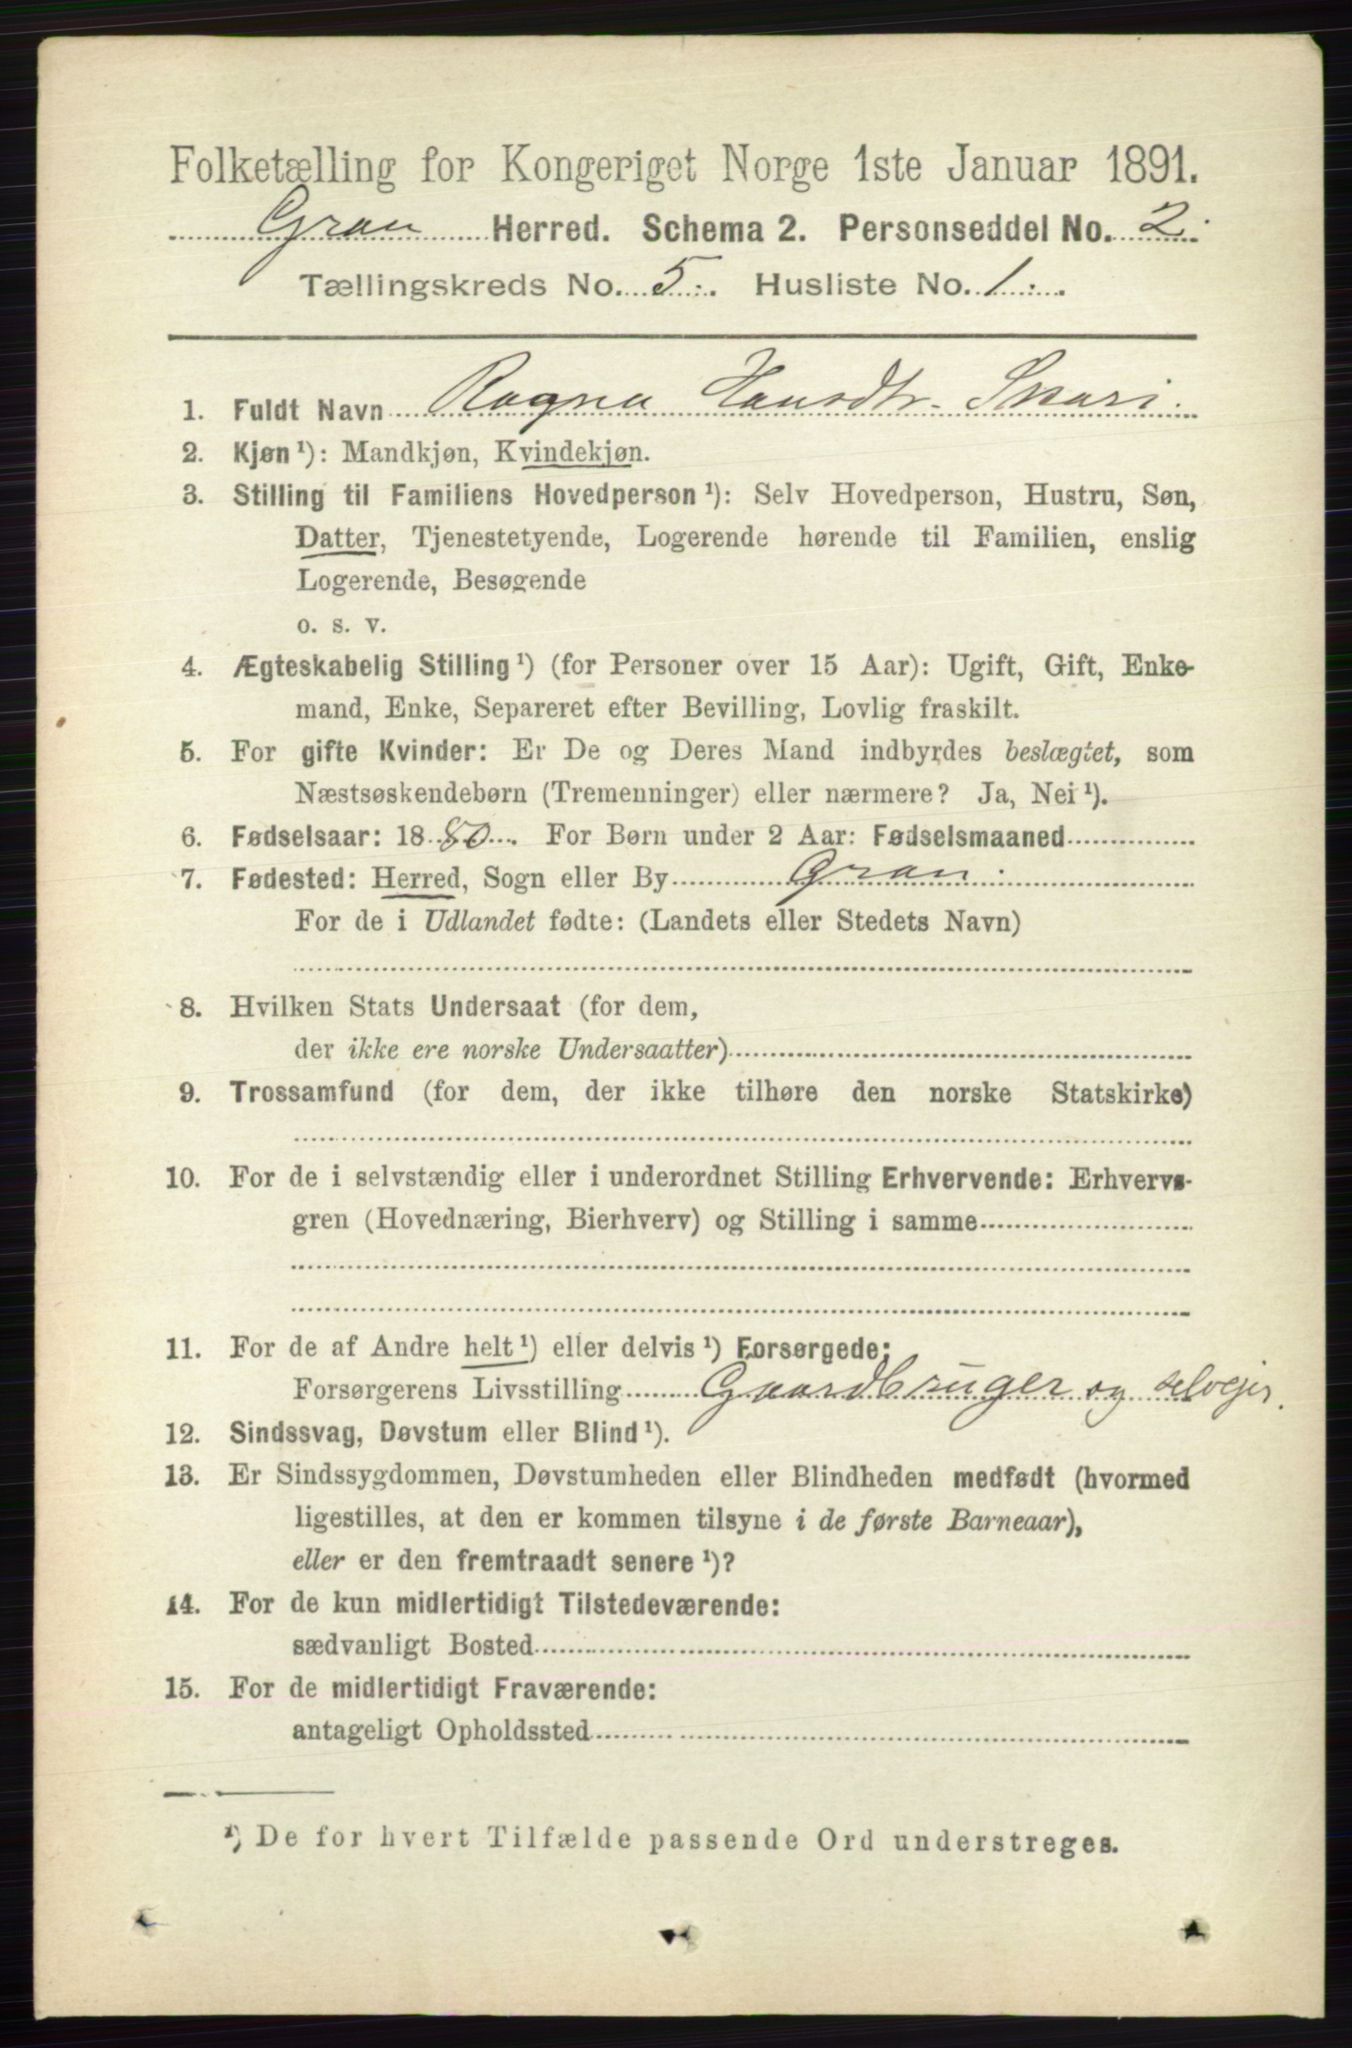 Folketælling for Kongeriget Norge 1ste Januar 1891.
Gran Herred. Schema 2. Personseddel No. 2.
Tællingskreds No. 5. Husliste No. 1.
1. Fuldt Navn Ragna Hansdtr.
2. Kjøn ¹): Mandkjøn, Kvindekjøn.
3. Stilling til Familiens Hovedperson ¹): Selv Hovedperson, Hustru, Søn,
Datter, Tjenestetyende, Logerende hørende til Familien, enslig
Logerende, Besøgende
o. s. v.
4. Ægteskabelig Stilling ¹) (for Personer over 15 Aar): Ugift, Gift, Enke-
mand, Enke, Separeret efter Bevilling, Lovlig fraskilt.
5. For gifte Kvinder: Er De og Deres Mand indbyrdes beslægtet, som
Næstsøskendebørn (Tremenninger) eller nærmere? Ja, Nei ¹).
6. Fødselsaar: 1880. For Børn under 2 Aar: Fødselsmaaned
7. Fødested: Herred, Sogn eller By Gran.
For de i Udlandet fødte: (Landets eller Stedets Navn)
8. Hvilken Stats Undersaat (for dem,
der ikke ere norske Undersaatter)
9. Trossamfund (for dem, der ikke tilhøre den norske Statskirke)
10. For de i selvstændig eller i underordnet Stilling Erhvervende: Erhvervs-
gren (Hovednæring, Bierhverv) og Stilling i samme
11. For de af Andre helt ¹) eller delvis ¹) Forsørgede:
Forsørgerens Livsstilling Gaardbruger og selvejer.
12. Sindssvag, Døvstum eller Blind ¹).
13. Er Sindssygdommen, Døvstumheden eller Blindheden medfødt (hvormed
ligestilles, at den er kommen tilsyne i de første Barneaar),
eller er den fremtraadt senere ¹)?
14. For de kun midlertidigt Tilstedeværende:
sædvanligt Bosted
15. For de midlertidigt Fraværende:
antageligt Opholdssted
¹) De for hvert Tilfælde passende Ord understreges.